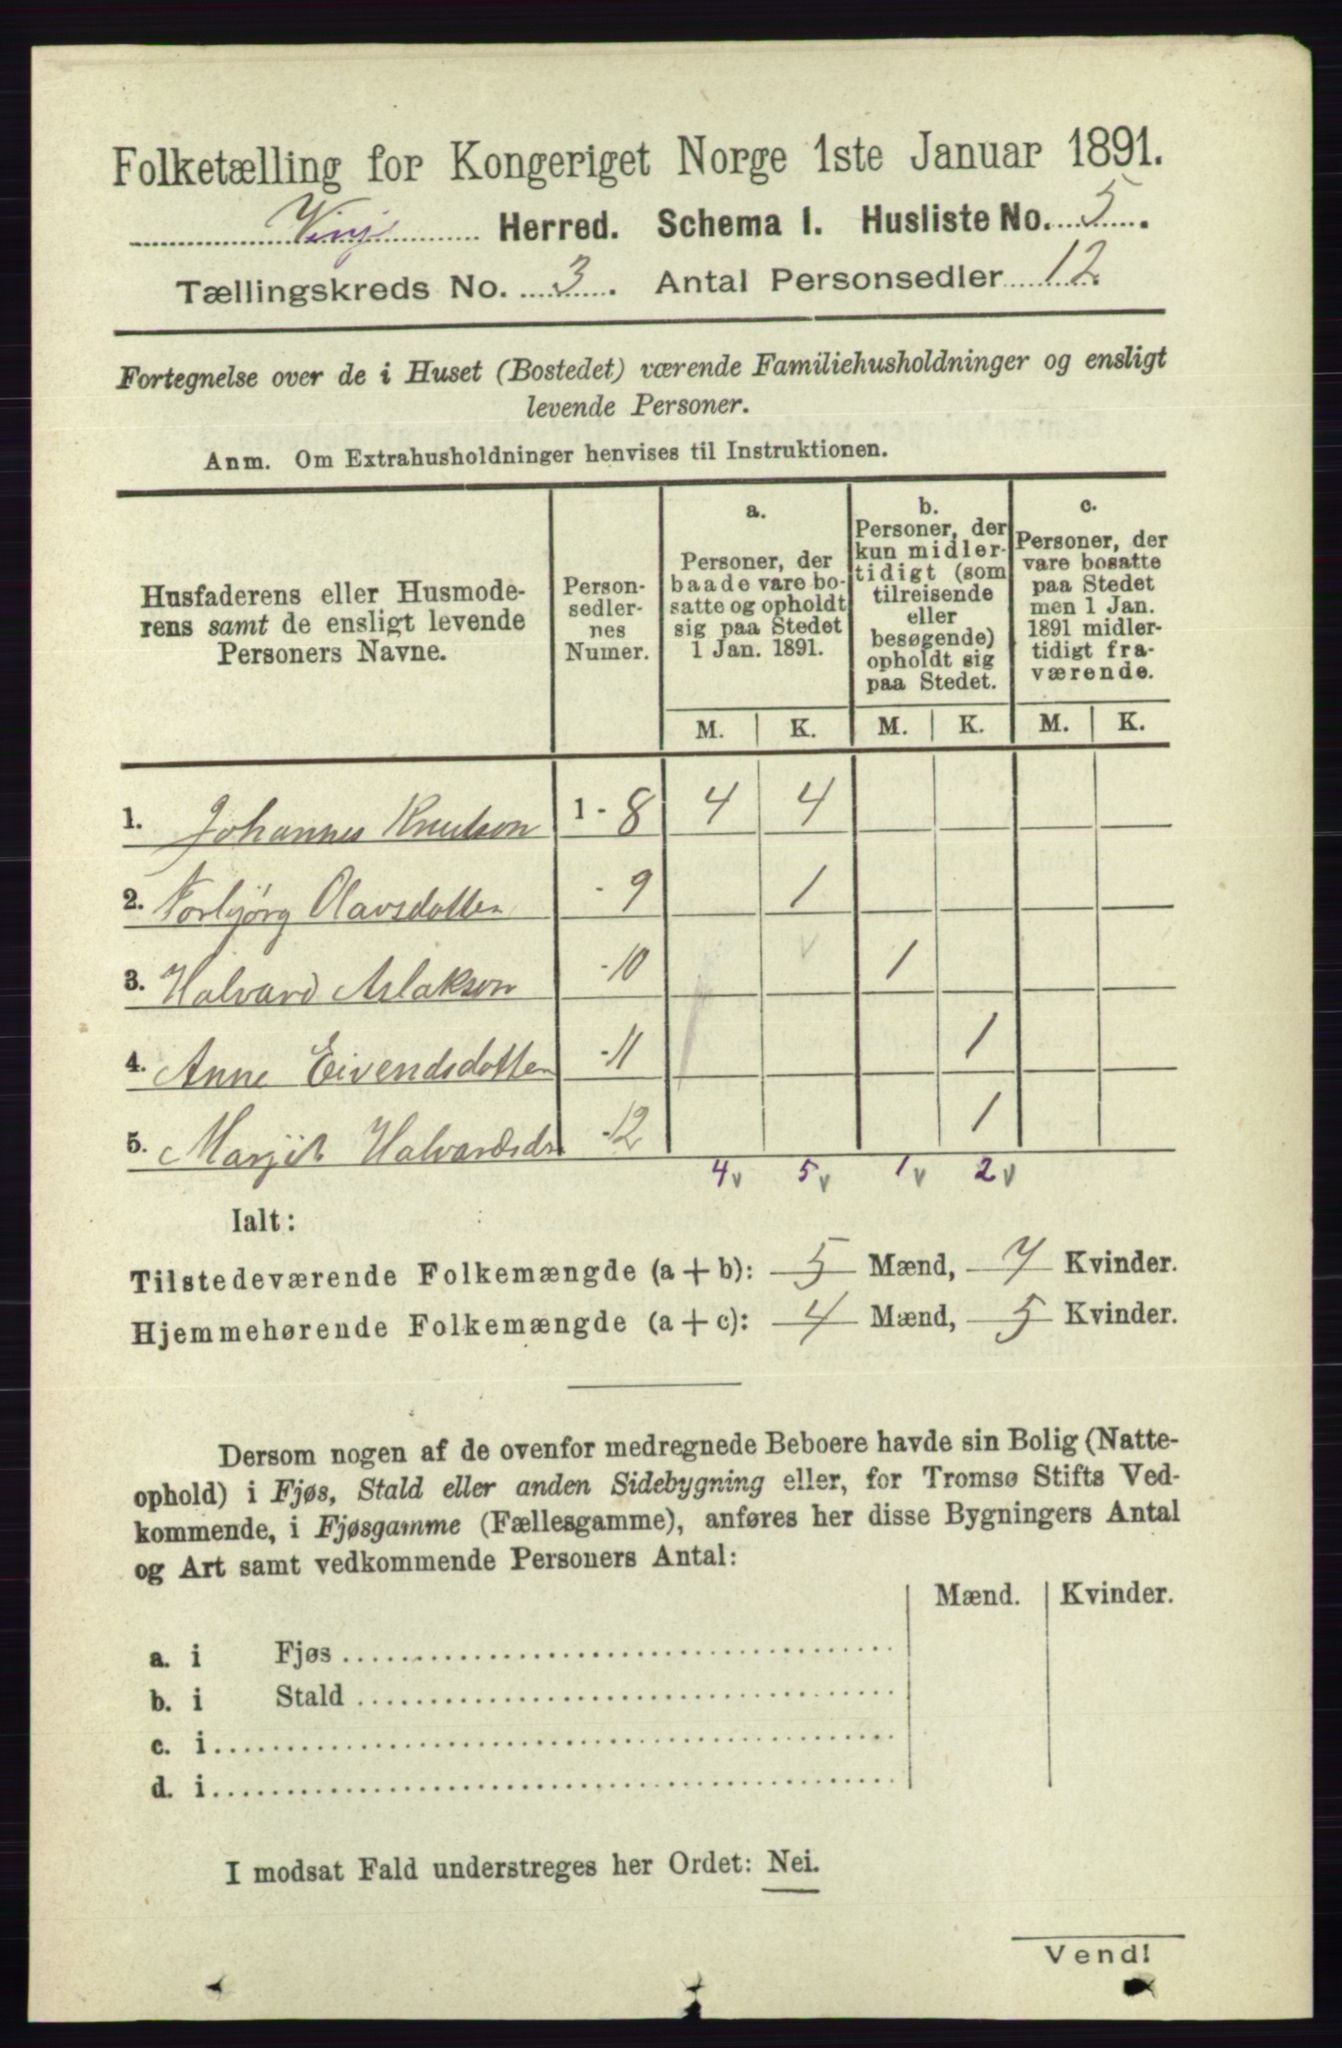 Folketælling for Kongeriget Norge 1ste Januar 1891.
Vinje Herred. Schema I. Husliste No. 5.
Tællingskreds No. 3. Antal Personsedler 12
Fortegnelse over de i Huset (Bostedet) værende Familiehusholdninger og ensligt
levende Personer.
Anm. Om Extrahusholdninger henvises til Instruktionen.
Husfaderens eller Husmode-
rens samt de ensligt levende
Personers Navne.
Person-
sedler-
nes
Numer.
a.
Personer, der
baade vare bo-
satte og opholdt
sig paa Stedet
1 Jan. 1891.
b.
Personer, der
kun midler-
tidigt (som
tilreisende
eller
besøgende)
opholdt sig
paa Stedet.
c.
Personer, der
vare bosatte
paa Stedet
men 1 Jan.
1891 midler-
tidigt fra-
værende.
M. K. M. K. M. K.
1. Johannes Knutson 1 - 8 4 4
2. Torbjørg Olavsdotter - 9 1
3. Halvard Aslakson - 10 1
4. Anne Eivendsdotter - 11 1
5. Margit Halvardsdr - 12 1
4 v 5 v 1 v 2 v
Ialt:
Tilstedeværende Folkemængde (a + b): 5 Mænd, 7 Kvinder.
Hjemmehørende Folkemængde (a + c): 4 Mænd, 5 Kvinder.
Dersom nogen af de ovenfor medregnede Beboere havde sin Bolig (Natte-
ophold) i Fjøs, Stald eller anden Sidebygning eller, for Tromsø Stifts Ved-
kommende, i Fjøsgamme (Fællesgamme), anføres her disse Bygningers Antal
og Art samt vedkommende Personers Antal:
Mænd. Kvinder.
a. i Fjøs
b. i Stald
c. i
d. i
I modsat Fald understreges her Ordet: Nei.
Vend!